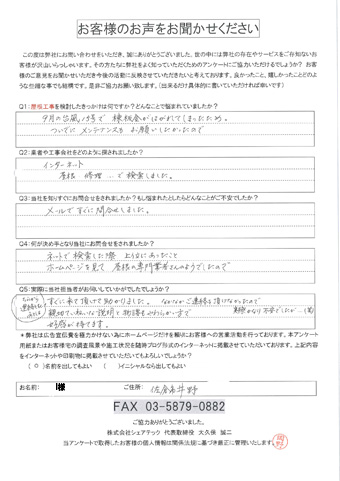 お客様のお声をお聞かせください
この度は弊社にお問い合わせをいただき、誠にありがとうございました。世の中には弊社の存在やサービスをご存知ないお
客様が沢山いらっしゃいます。その方たちに弊社をよく知っていただくためのアンケートにご協力いただけるでしょうか?お客
様のご意見をお聞かせいただき今後の活動に反映させていただきたいと考えております。良かったこと、嬉しかったことどのよ
うな些細な事でも結構です。是非ご協力お願い致します。(出来るだけ具体的に書いていただければ幸いです)
Q1:屋根工事を検討したきっかけは何ですか?どんなことで悩まれていましたか?
9月の台風15号で 棟板金がはがれてしまったため。
ついでに メンテナンスも お願いしたかったので
Q2:業者や工事会社をどのように探されましたか?
インターネット
屋根 修理 で検索しました。
Q3:当社を知りすぐにお問合せをされましたか?もし悩まれたとしたらどんなことがご不安でしたか?
メールですぐに問合せしました。
Q4:何が決め手となり当社にお問合せをされましたか?
ネットで検索した際 上位にあったこと
ホームページを見て 屋根の専門業者さんのようでしたので
Q5:実際に当社担当者がお伺いしていかがでしたでしょうか?
すぐに来て頂けて助かりました。 なかなかご連絡を頂けなかったので
親切でていねいな説明と
好感が持てます。
※弊社は広告宣伝費を極力かけない為にホームページだけを頼りにお客様への営業活動を行っております。本アンケート
用紙またはお客様宅の調査風景や施工状況を随時ブログ形式でインターネットに掲載させていただいております。上記内容
をインターネットや印刷物に掲載させていただいてもよろしいでしょうか?
( )名前を出してもよい ( )イニシャルなら出してもよい
お名前: 様 ご住所: 佐倉市井野
FAX 03-5879-0882
ご協力ありがとうございました。
株式会社シェアテック 代表取締役 大久保 誠二
当アンケートで取得したお客様の個人情報は関係法規に基づき厳正に管理いたします。